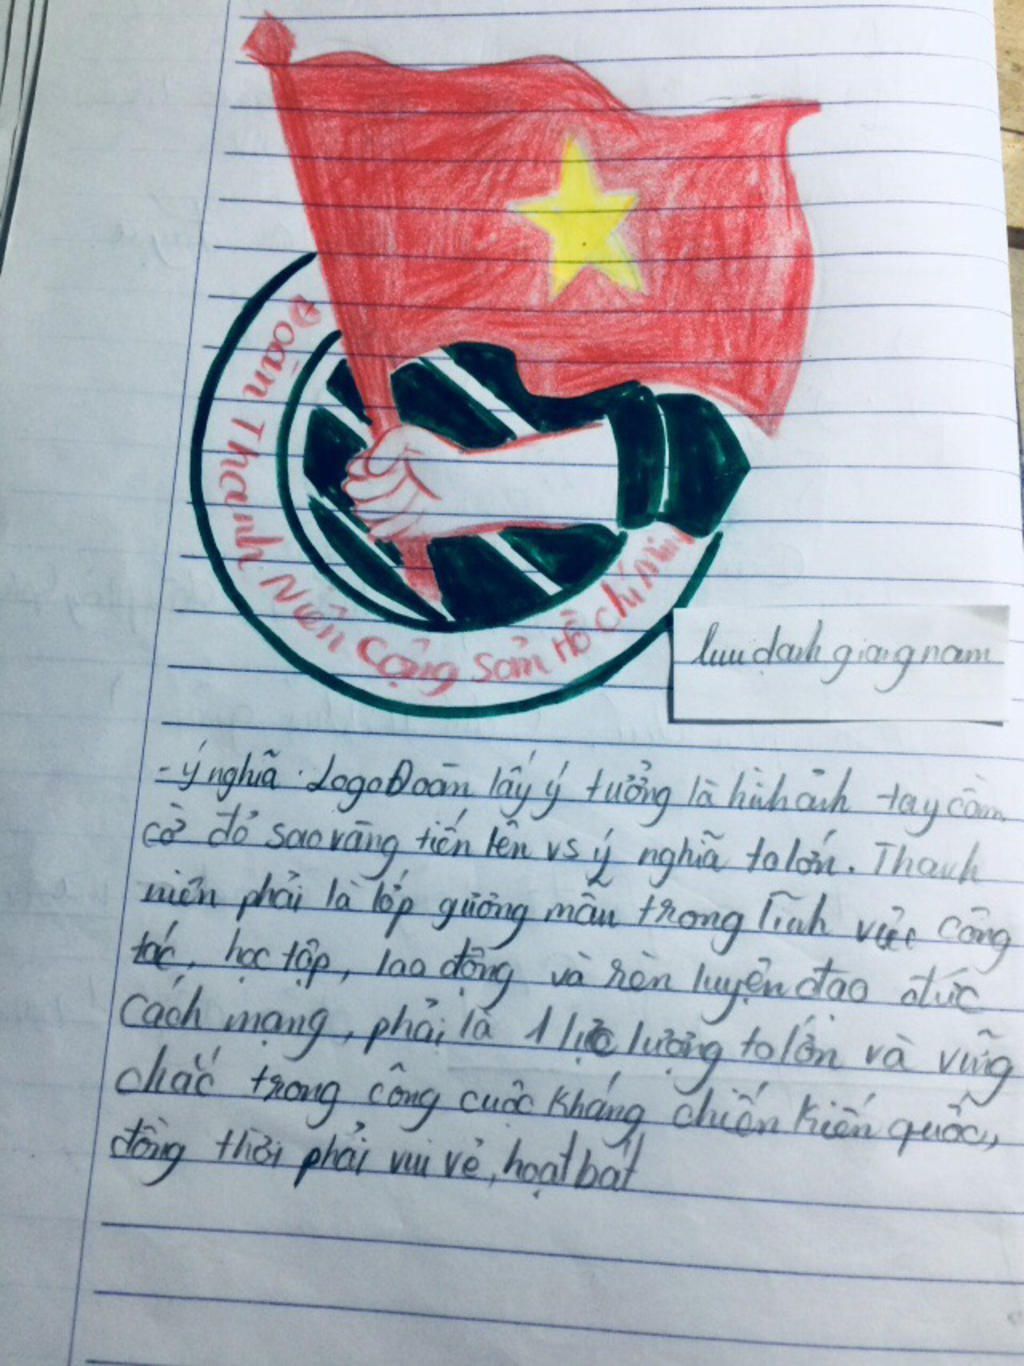 Đoàn Thanh Niên Cộng Sản Hồ Chí Minh
lưu danh giang nam
- ý nghĩa. Logo Đoàn lấy ý tưởng là hình ảnh tay cầm
cờ đỏ sao vàng tiến lên vs ý nghĩa to lớn. Thanh
niên phải là lớp gương mẫu trong lĩnh vực công
tác, học tập, lao động và rèn luyện đạo đức
Cách mạng, phải là 1 lực lượng to lớn và vững
chắc trong công cuộc kháng chiến kiến quốc,
đồng thời phải vui vẻ, hoạt bát